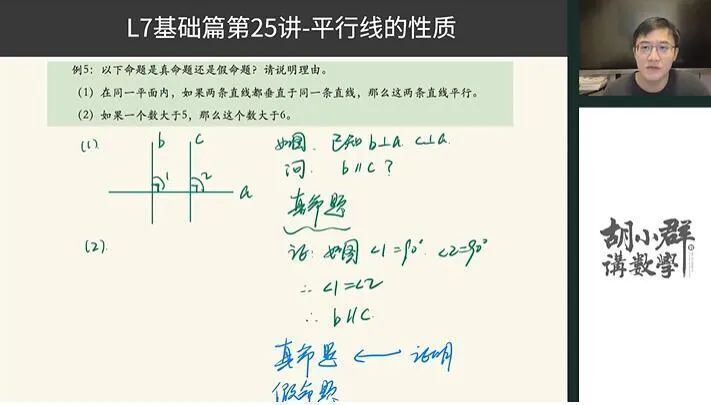 L7基础篇第25讲-平行线的性质
例5：以下命题是真命题还是假命题？请说明理由。
（1）在同一平面内，如果两条直线都垂直于同一条直线，那么这两条直线平行。
（2）如果一个数大于5，那么这个数大于6。
(1)
b c
1 2
a
如图. 已知 b⊥a. c⊥a.
问. b∥c？
真命题
(2).
证: 如图 ∠1=90° ∠2=90°
∴ ∠1=∠2
∴ b∥c.
真命题 ← 证明
假命题
胡小群
講數學